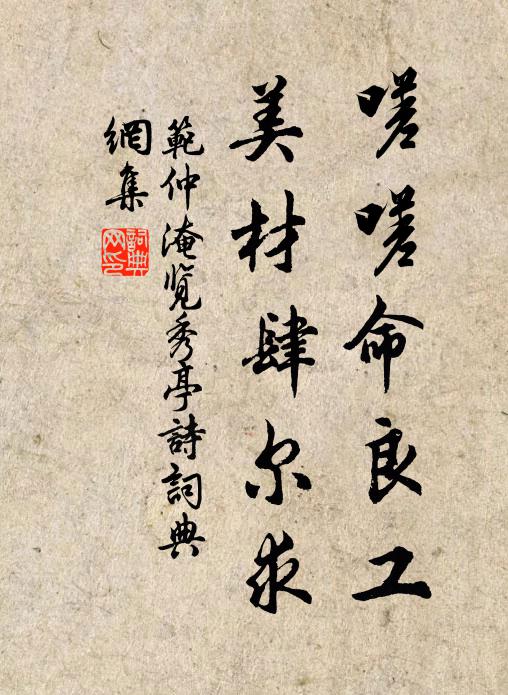 嗟嗟命良工
美材肆尔求
範仲淹览秀亭詩詞典
網集
詞典网印